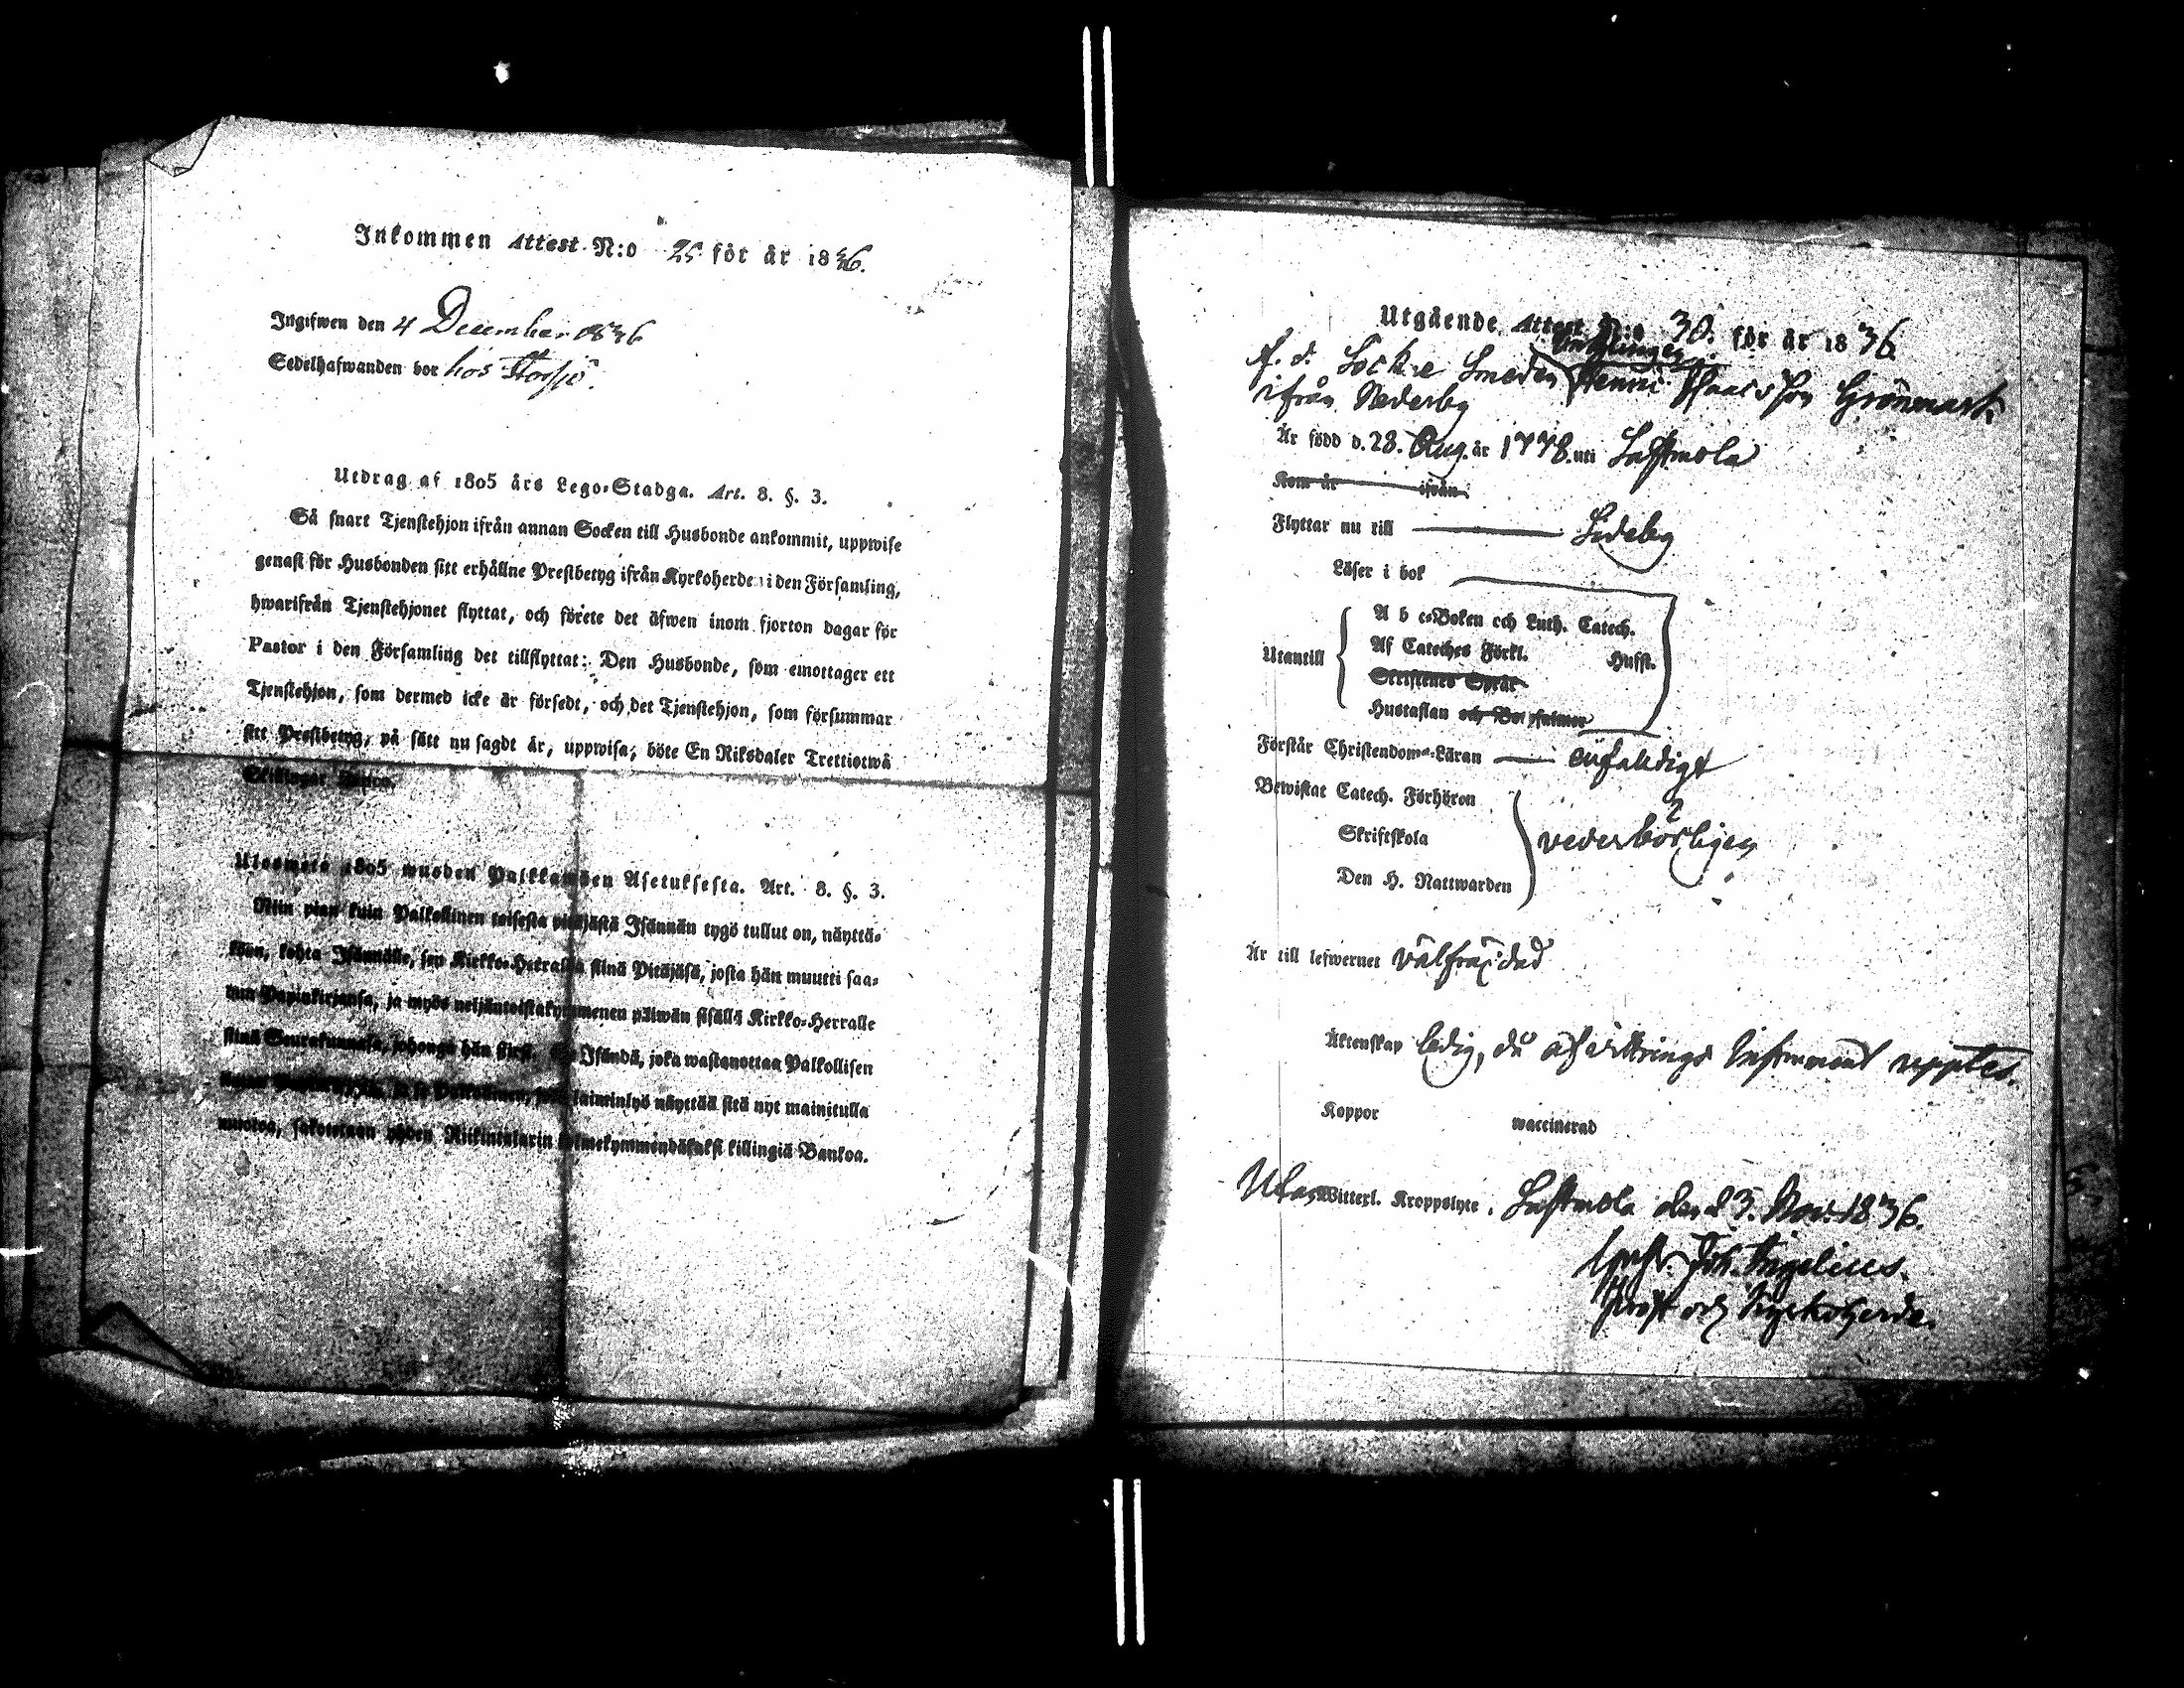 Inkommen Attest N:o 25 för år 1836.
Ingifwen den 4 December 1836
Sedelhafwanden bor hos Storsjö.
Utdrag af 1805 års Lego-Stadga. Art. 8. §. 3.
Så snart Tjenstehjon ifrån annan Socken till Husbonde ankommit, uppwise
genast för Husbonden sitt erhållne Prestbetyg ifrån Kyrkoherden i den Församling,
hwarifrån Tjenstehjonet flyttat, och förete det äfwen inom fjorton dagar för
Pastor i den Församling det tillflyttat: Den Husbonde, som emottager ett
Tjenstehjon, som dermed icke är försedt, och det Tjenstehjon, som försummar
sitt Prestbetyg, på sätt nu sagdt är, uppwisa, böte En Riksdaler Trettiotwå
Skillingar Banco.
Ulosweto 1805 wuoden Palkkawäen Asetuksesta. Art. 8. §. 3.
Niin pian kuin Palkollinen toisesta pitäjästä Isännän tygö tullut on, näyttä-
kön, kohta Isännälle, sen Kirkko-Herralda siinä Pitäjäsä, josta hän muutti saa-
dun Papinkirjansa, ja myös neljäntoistakymmenen päiwän sisällä Kirkko-Herralle
siinä Seurakunnasa, johonga hän siirsi. Isändä, joka wastanottaa Palkollisen
ja se Palkollinen, joka laiminlyö näyttää sitä nyt mainitulla
muotoa, sakotetaan yhden Riikintalarin kolmekymmendäkaksi killingiä Bankoa.
Utgående Attest N:o 30. för år 1836
f. d. Sockne Smeden Henric Isaacsson Grönmark
ifrån Nederby
Är född d. 28. Aug. år 1778. uti Lappmola
Kom år ifrån
Flyttar nu till Sideby
Läser i bok
Utantill
A b c-Boken och Luth. Catech.
Af Cateches Förkl. Hufst.
Skriftenes Språk
Hustaflan och Botpsalmer
Förstår Christendoms-Läran enfaldigt
Bewistat Catech. Förhören
Skriftskola
Den H. Nattwarden
vederbörligen
Är till lefwernet välfräjdad
Äktenskap ledig, då afvittrings Instrument upptes.
Koppor waccinerad
Utan Witterl. Kroppslyte. Lappmola den 23. Nov. 1836.
Joh. Wegelius.
Prost och Kyrkoherde.